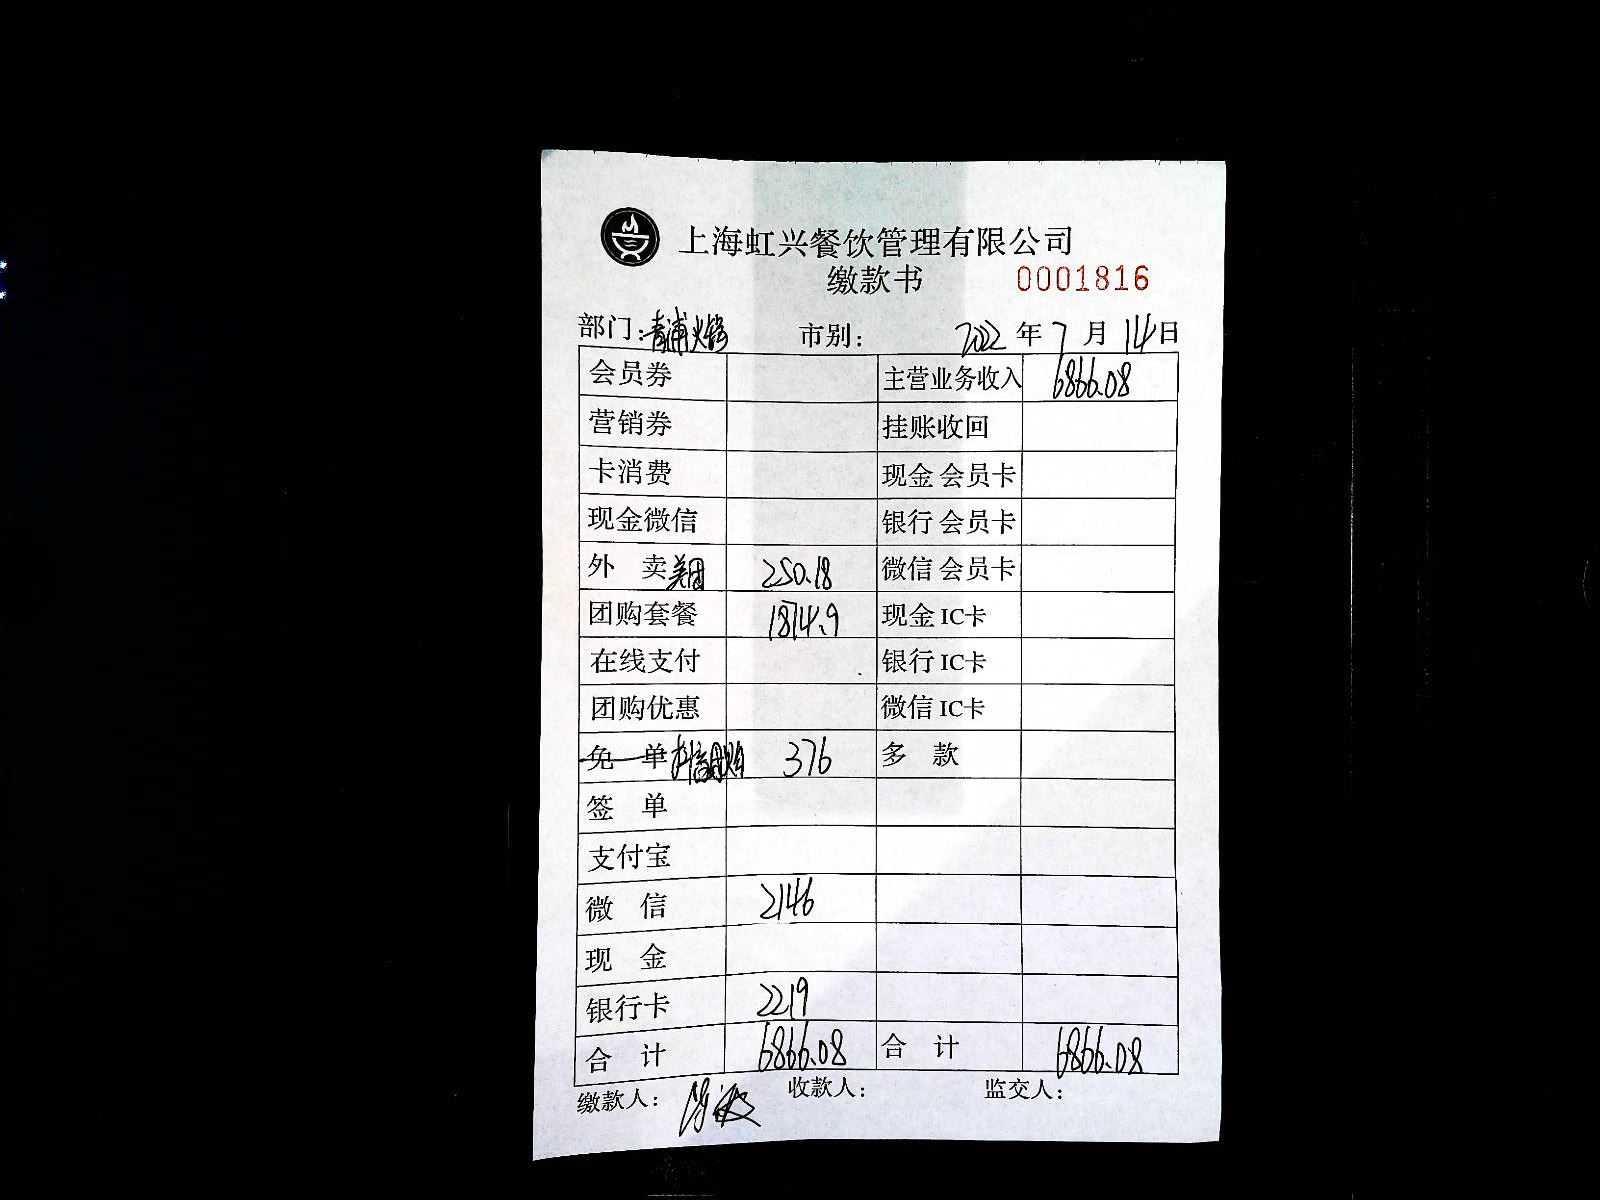 上海虹兴餐饮管理有限公司
缴款书 0001816
部门:青浦火锅 市别: 2022 年 7 月 14 日
会员券 主营业务收入 6866.08
营销券 挂账收回
卡消费 现金 会员卡
现金微信 银行 会员卡
外 卖 美团 250.18 微信 会员卡
团购套餐 1874.9 现金 IC卡
在线支付 银行 IC卡
团购优惠 微信 IC卡
免 单 抖音团购 376 多 款
签 单
支付宝
微 信 2146
现 金
银行卡 2219
合 计 6866.08 合 计 6866.08
缴款人: 收款人: 监交人: